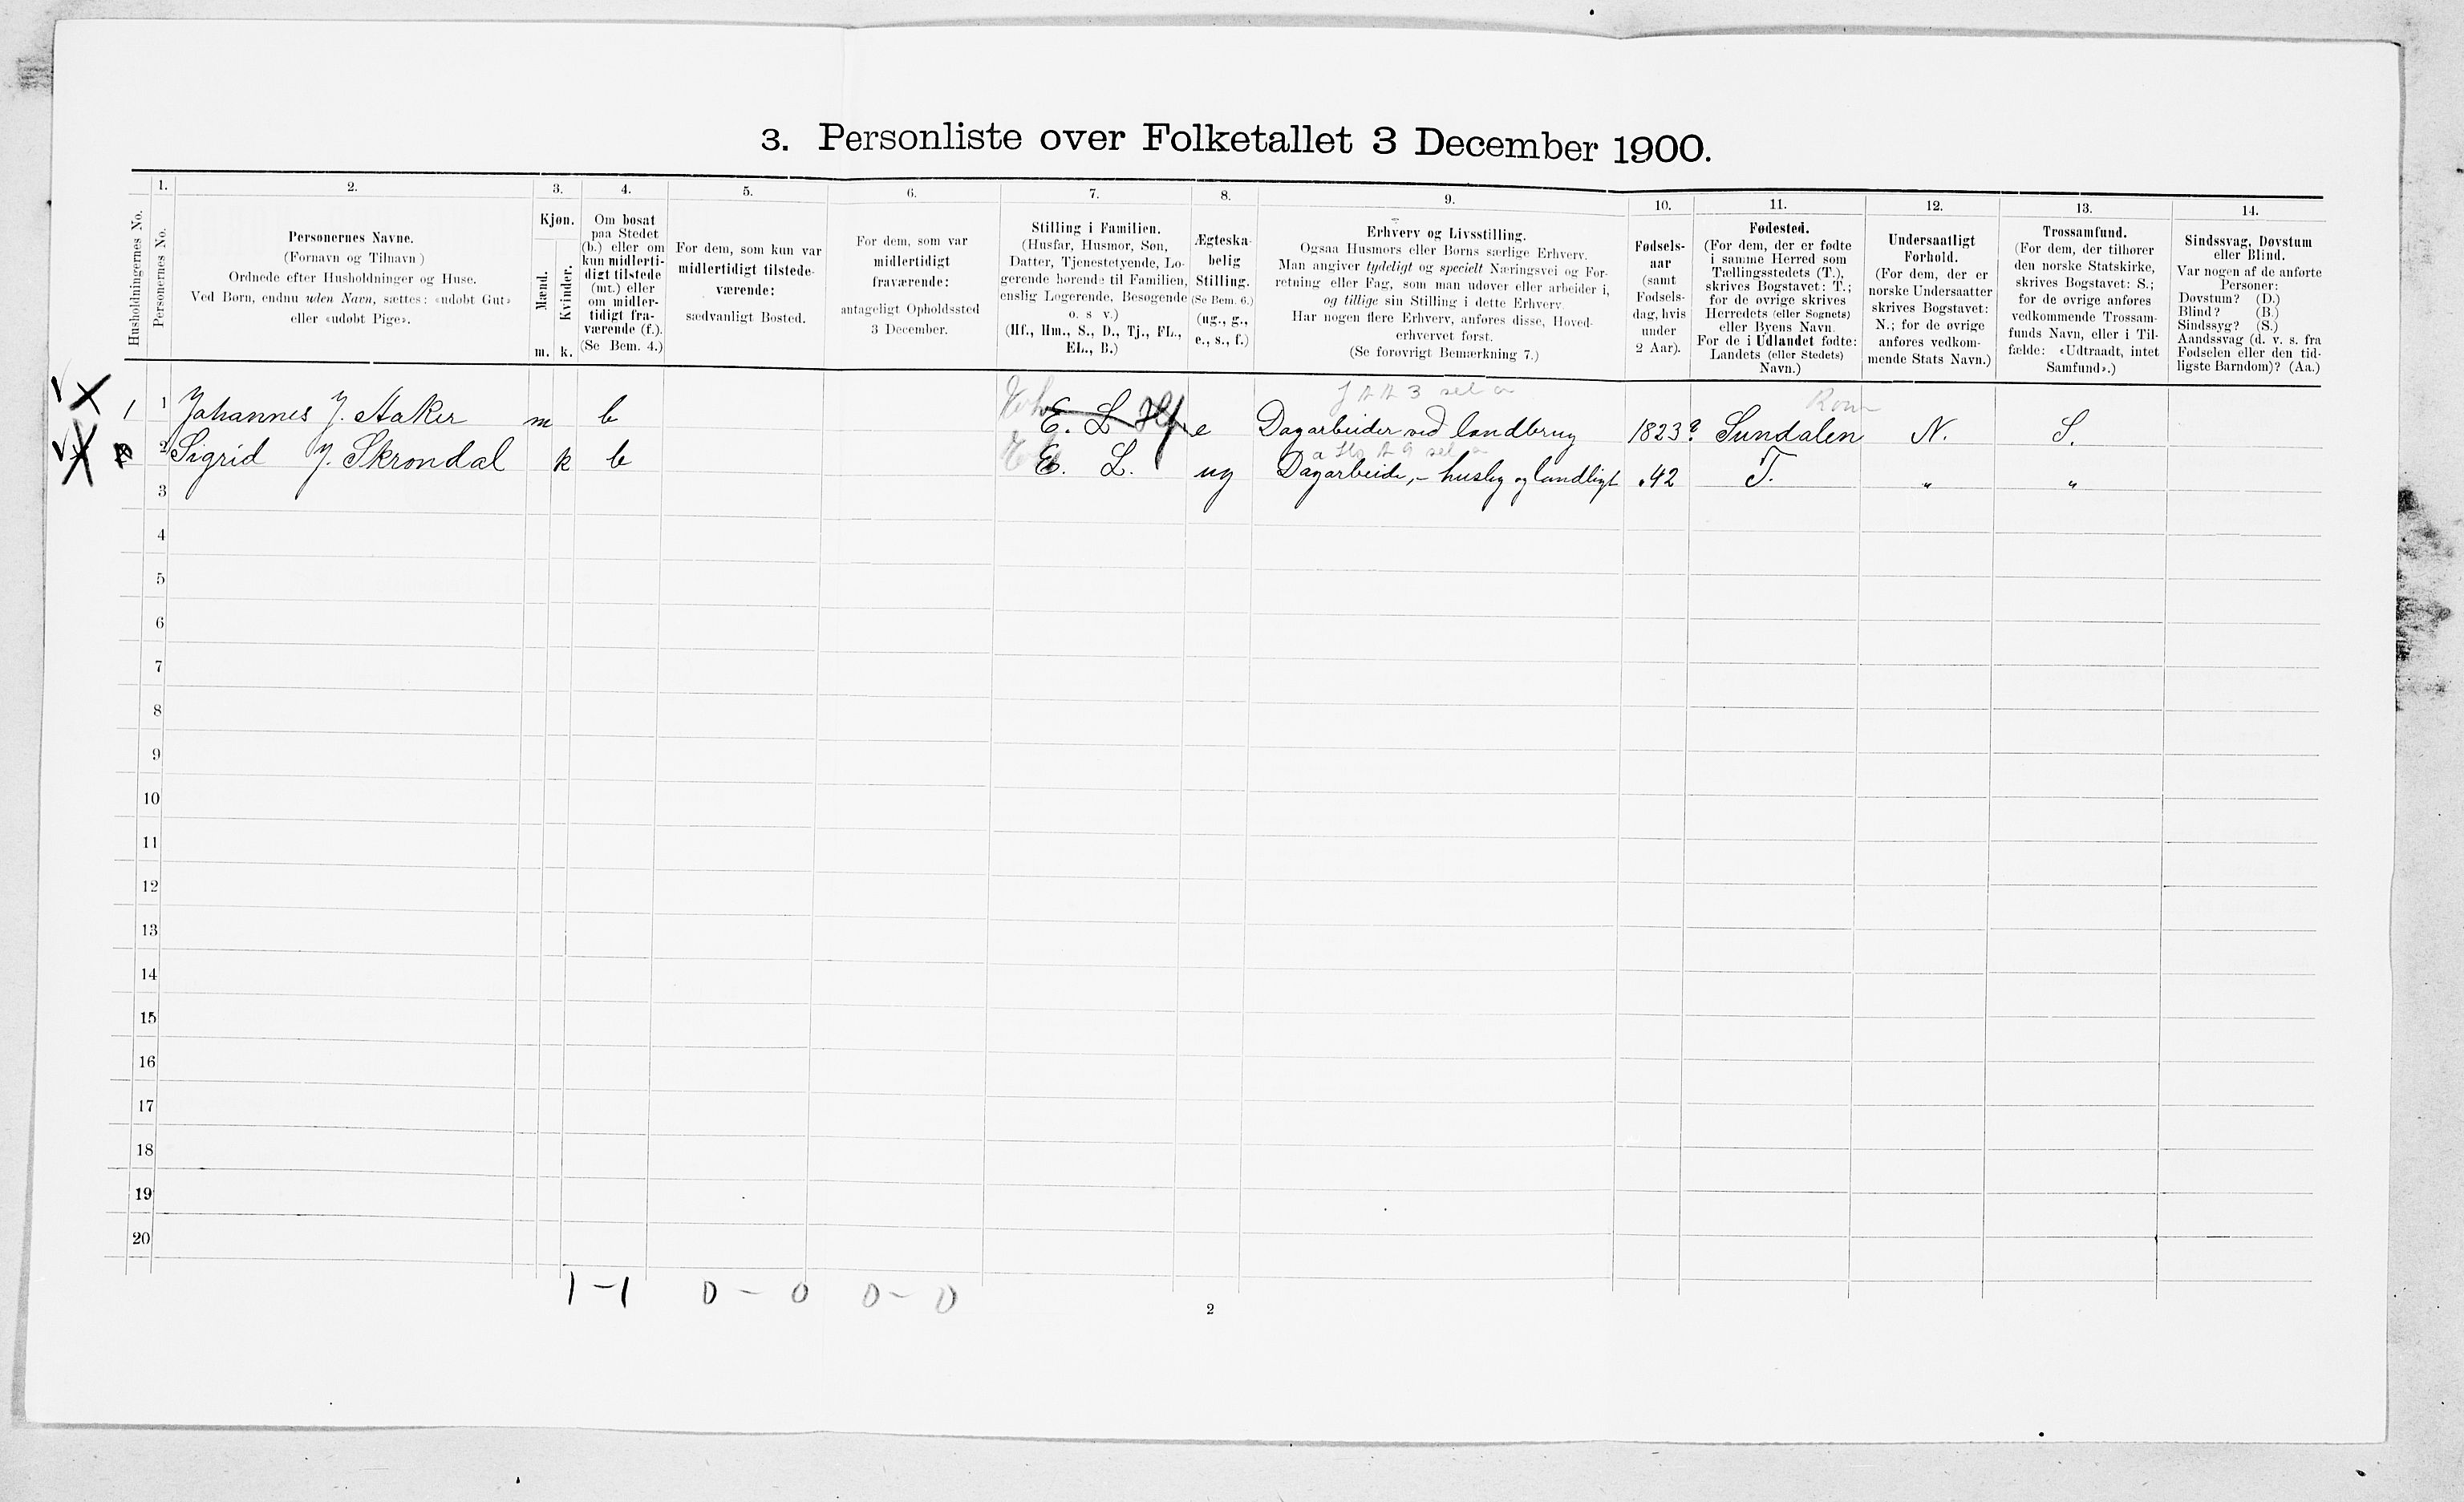 3. Personliste over Folketallet 3 December 1900.
Husholdningernes No.
1.
Personernes No.
2.
Personernes Navne.
(Fornavn og Tilnavn)
Ordnede efter Husholdninger og Huse.
Ved Børn, endnu uden Navn, sættes: «udøbt Gut»
eller «udøbt Pige».
3.
Kjøn.
Mænd.
Kvinder.
m. k.
4.
Om bosat
paa Stedet
(b.) eller om
kun midlerti-
digt tilstede
(mt.) eller
om midler-
tidigt fra-
værende (f.).
(Se Bem. 4.)
5.
For dem, som kun var
midlertidigt tilstede-
værende:
sædvanligt Bosted.
6.
For dem, som var
midlertidigt
fraværende:
antageligt Opholdssted
3 December.
7.
Stilling i Familien.
(Husfar, Husmor, Søn,
Datter, Tjenestetyende, Lo-
gerende hørende til Familien,
enslig Logerende, Besøgende
o. s v.)
(Hf., Hm., S., D., Tj., FL.,
EL., B.)
8.
Ægteska-
belig
Stilling.
(Se Bem. 6.)
(ug., g.,
e., s., f.)
9.
Erhverv og Livsstilling.
Ogsaa Husmors eller Børns særlige Erhverv.
Man angiver tydeligt og specielt Næringsvei og For-
retning eller Fag, som man udøver eller arbeider i,
og tillige sin Stilling i dette Erhverv.
Har nogen flere Erhverv, anføres disse, Hoved-
erhvervet først.
(Se forøvrigt Bemærkning 7.)
10.
Fødsels-
aar
(samt
Fødsels-
dag, hvis
under
2 Aar).
11.
Fødested.
(For dem, der er fødte
i samme Herred som
Tællingsstedets (T.),
skrives Bogstavet: T.;
for de øvrige skrives
Herredets (eller Sognets)
eller Byens Navn.
For de i Udlandet fødte:
Landets (eller Stedets)
Navn.)
12.
Undersaatligt
Forhold.
(For dem, der er
norske Undersaatter
skrives Bogstavet:
N.; for de øvrige
anføres vedkom-
mende Stats Navn.)
13.
Trossamfund.
(For dem, der tilhører
den norske Statskirke,
skrives Bogstavet: S.;
for de øvrige anføres
vedkommende Trossam-
funds Navn, eller i Til-
fælde: «Udtraadt, intet
Samfund».)
14.
Sindssvag, Døvstum
eller Blind.
Var nogen af de anførte
Personer:
Døvstum? (D.)
Blind? (B.)
Sindssyg? (S.)
Aandssvag (d. v. s. fra
Fødselen eller den tid-
ligste Barndom)? (Aa.)
1 1 Johannes J. Aaker m b E. L Hf e Dagarbeider ved landbrug 1823? Sundalen N. S.
2 Sigrid J. Skrondal k b E. L. ug Dagarbeide, - huslig og landligt .42 T. " "
3
4
5
6
7
8
9
10
11
12
13
14
15
16
17
18
19
20
1 - 1 0 - 0 0 - 0
2